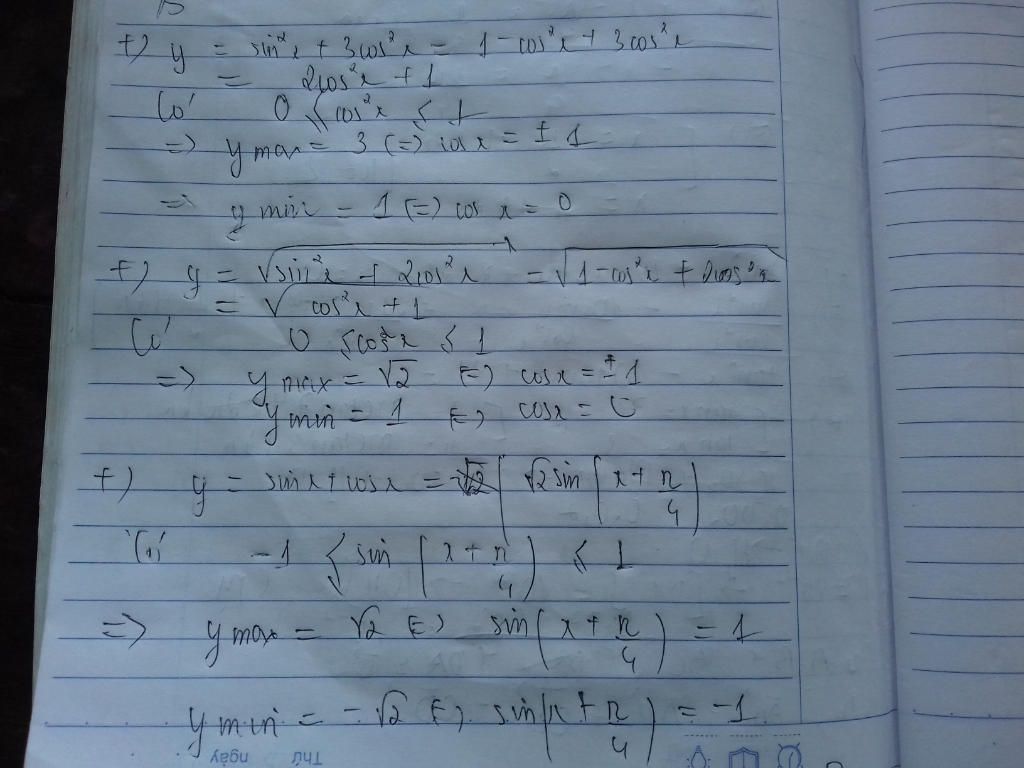 +) y = sin²x + 3cos²x = 1 - cos²x + 3cos²x
= 2cos²x + 1
Có 0 ≤ cos²x ≤ 1
=> y max = 3 (=) cos x = ± 1
=> y min = 1 (=) cos x = 0
+) y = √sin²x + 2cos²x = √1 - cos²x + 2cos²x
= √cos²x + 1
Có 0 ≤ cos²x ≤ 1
=> y max = √2 (=) cosx = ± 1
y min = 1 (=) cosx = 0
+) y = sinx + cosx = √2 sin (x + π/4)
Có -1 ≤ sin (x + π/4) ≤ 1
=> y max = √2 (=) sin (x + π/4) = 1
y min = -√2 (=) sin (x + π/4) = -1
Thứ ngày